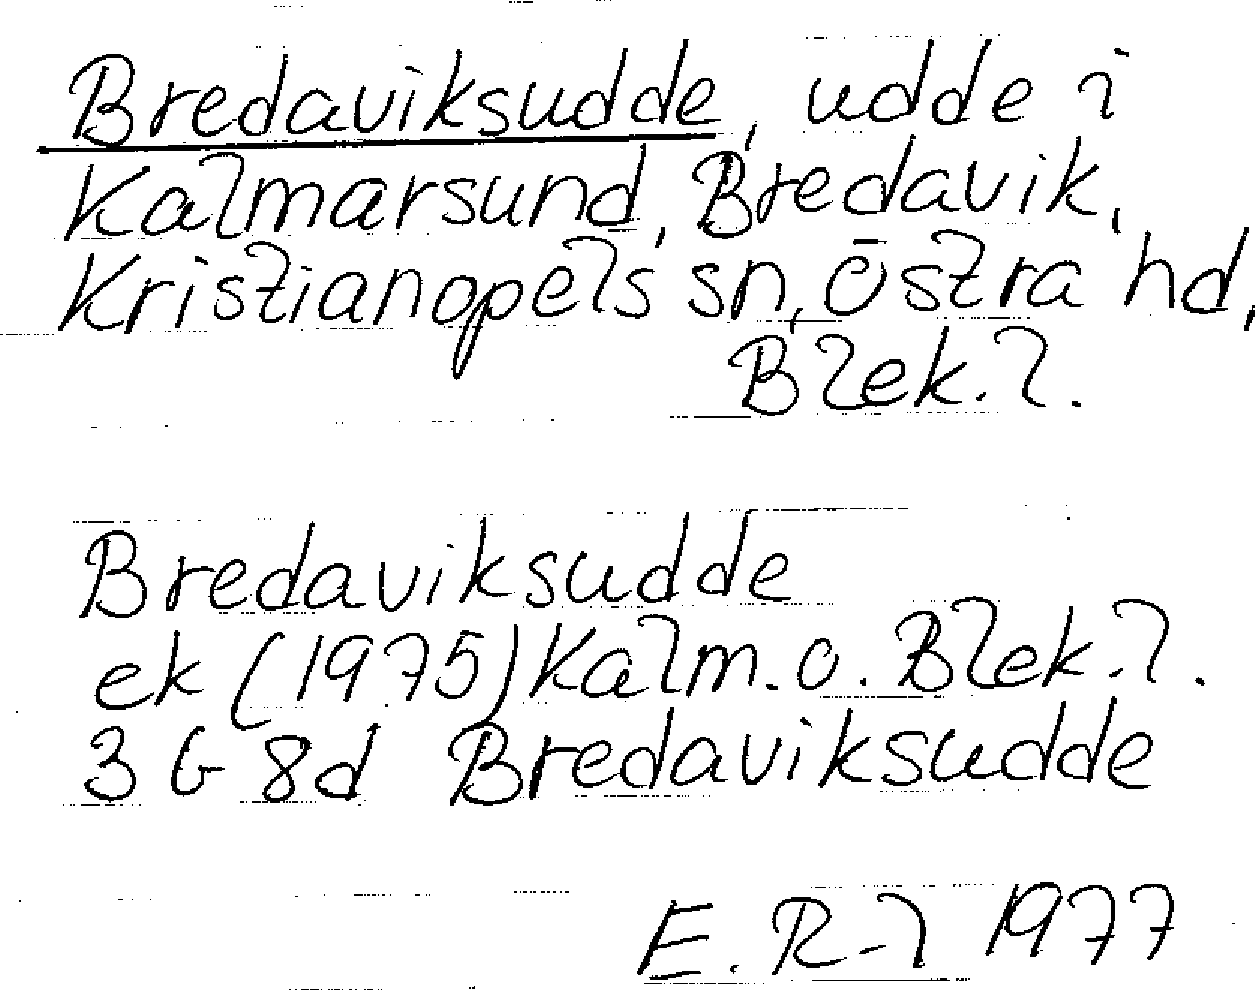 Bredaviksudde, udde i
Kalmarsund, Bredavik,
Kristianopels sn, Östra hd,
Blek. l.
Bredaviksudde
ek (1975) Kalm. o. Blek. l.
3 G 8d Bredaviksudde
E. R-l 1977